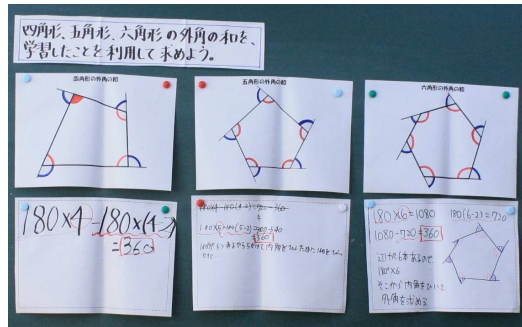 四角形、五角形、六角形の外角の和を、
学習したことを利用して求めよう。
四角形の外角の和
五角形の外角の和
六角形の外角の和
180×4-180×(4-2)
=360
180×4-180(4-2)=720-360
180×5-180(5-2)=
360
180×6=1080 180(6-2)=720
1080-720=360
6本あるので
180×6
そこから内角をひいて
外角を求める